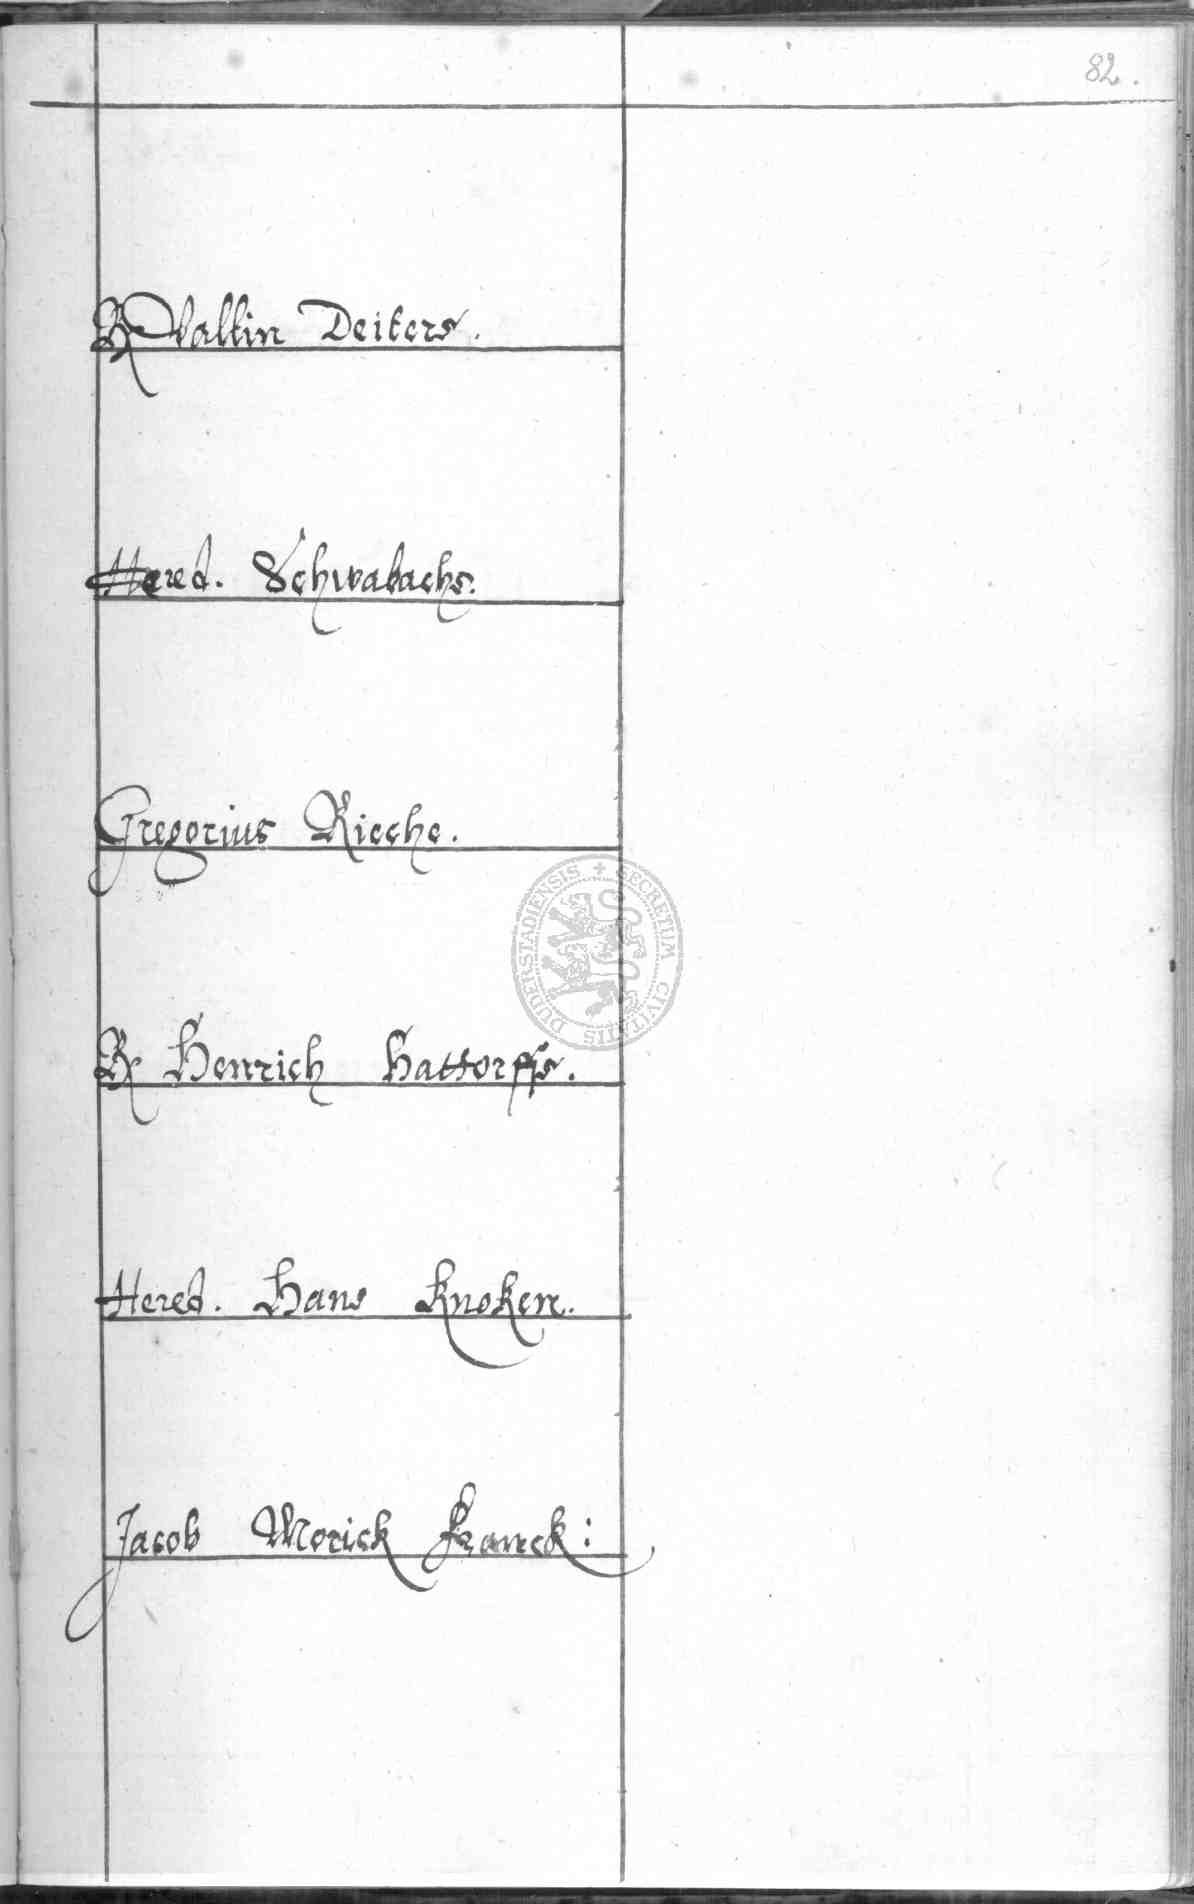 82.
R Valtin Deiters.
Hered. Schwabachs.
Gregorius Rieche.
R Henrich Hattorffs.
Hered. Hans Knoken.
Jacob Morick Franck:
SECRETUM CIVITATIS DUDERSTADIENSIS